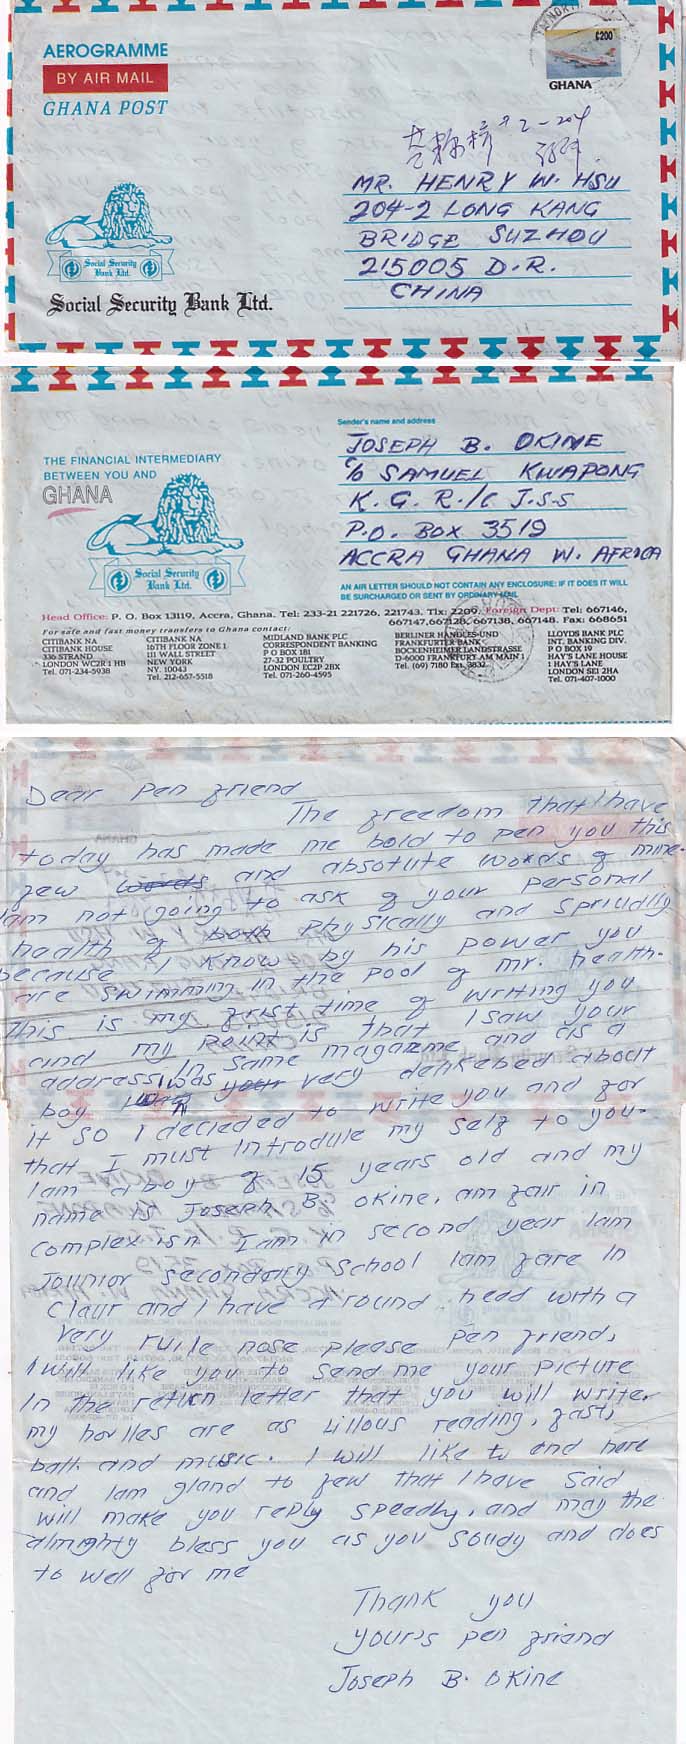 AEROGRAMME
BY AIR MAIL
GHANA POST
¢200
GHANA
2-204
MR. HENRY W. HSU
204-2 LONG KANG
BRIDGE SUZHOU
215005 D.R.
CHINA
Social Security
Bank Ltd.
Social Security Bank Ltd.
THE FINANCIAL INTERMEDIARY
BETWEEN YOU AND
GHANA
Social Security
Bank Ltd.
Sender's name and address
JOSEPH B. OKINE
c/o SAMUEL KWAPONG
K. G. R./C J.S.S
P.O. BOX 3519
ACCRA GHANA W. AFRICA
AN AIR LETTER SHOULD NOT CONTAIN ANY ENCLOSURE: IF IT DOES IT WILL
BE SURCHARGED OR SENT BY ORDINARY MAIL
Head Office: P. O. Box 13119, Accra, Ghana. Tel: 233-21 221726, 221743. Tlx: 2209, Foreign Dept: Tel: 667146,
667147,667128, 667138, 667148. Fax: 668651
For safe and fast money transfers to Ghana contact:
CITIBANK NA
CITIBANK HOUSE
336 STRAND
LONDON WC2R 1 HB
Tel. 071-234-5938
CITIBANK NA
16TH FLOOR ZONE 1
111 WALL STREET
NEW YORK
NY. 10043
Tel. 212-657-5518
MIDLAND BANK PLC
CORRESPONDENT BANKING
P O BOX 181
27-32 POULTRY
LONDON EC2P 2BX
Tel. 071-260-4595
BERLINER HANDLES-UND
FRANKFURTER BANK
BOCKENHEIMER LANDSTRASSE
D-6000 FRANKFURT AM MAIN 1
Tel. (69) 7180 Ext. 3832
LLOYDS BANK PLC
INT. BANKING DIV.
P O BOX 19
HAY'S LANE HOUSE
1 HAY'S LANE
LONDON SE1 2HA
Tel. 071-407-1000
Dear Pen friend
The freedom that I have
today has made me bold to pen you this
few words and absolute words of mine.
Iam not going to ask of your personal
health of both physically and spriudly
because I know by his power you
are swimming in the pool of mr. health.
This is my first time of writing you
and my point is that I saw your
address in same magazine and as a
boy I was very denkebed about
it so I decieded to write you and for
that I must introdule my self to you.
Iam a boy of 15 years old and my
name is Joseph B. Okine, am fair in
complexisn Iam in second year Iam
Jounior secondary school Iam fare in
clour and I have a round head with a
very ruile nose please pen friend,
I will like you to send me your picture
In the return letter that you will write.
my hoblles are as lillous reading, fast,
ball and music. I will like to end here
and Iam gland to few that I have said
will make you reply speadly, and may the
almighty bless you as you soudy and does
to well for me
Thank you
your's pen friend
Joseph B. Okine